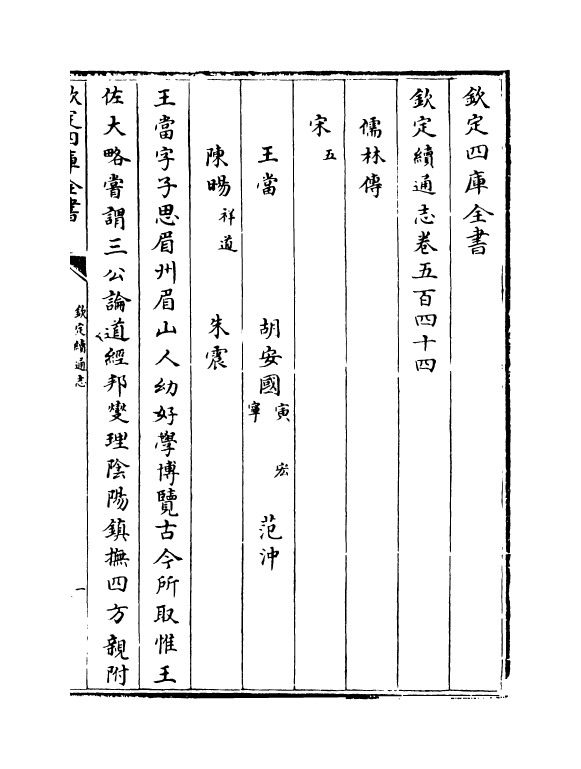 欽定四庫全書
欽定續通志卷五百四十四
儒林傳
宋五
王當 胡安國寅 宏 寧 范沖
陳暘祥道 朱震
王當字子思眉州眉山人幼好學博覽古今所取惟王
佐大略嘗謂三公論道經邦燮理陰陽鎮撫四方親附
欽定四庫全書
欽定續通志
一